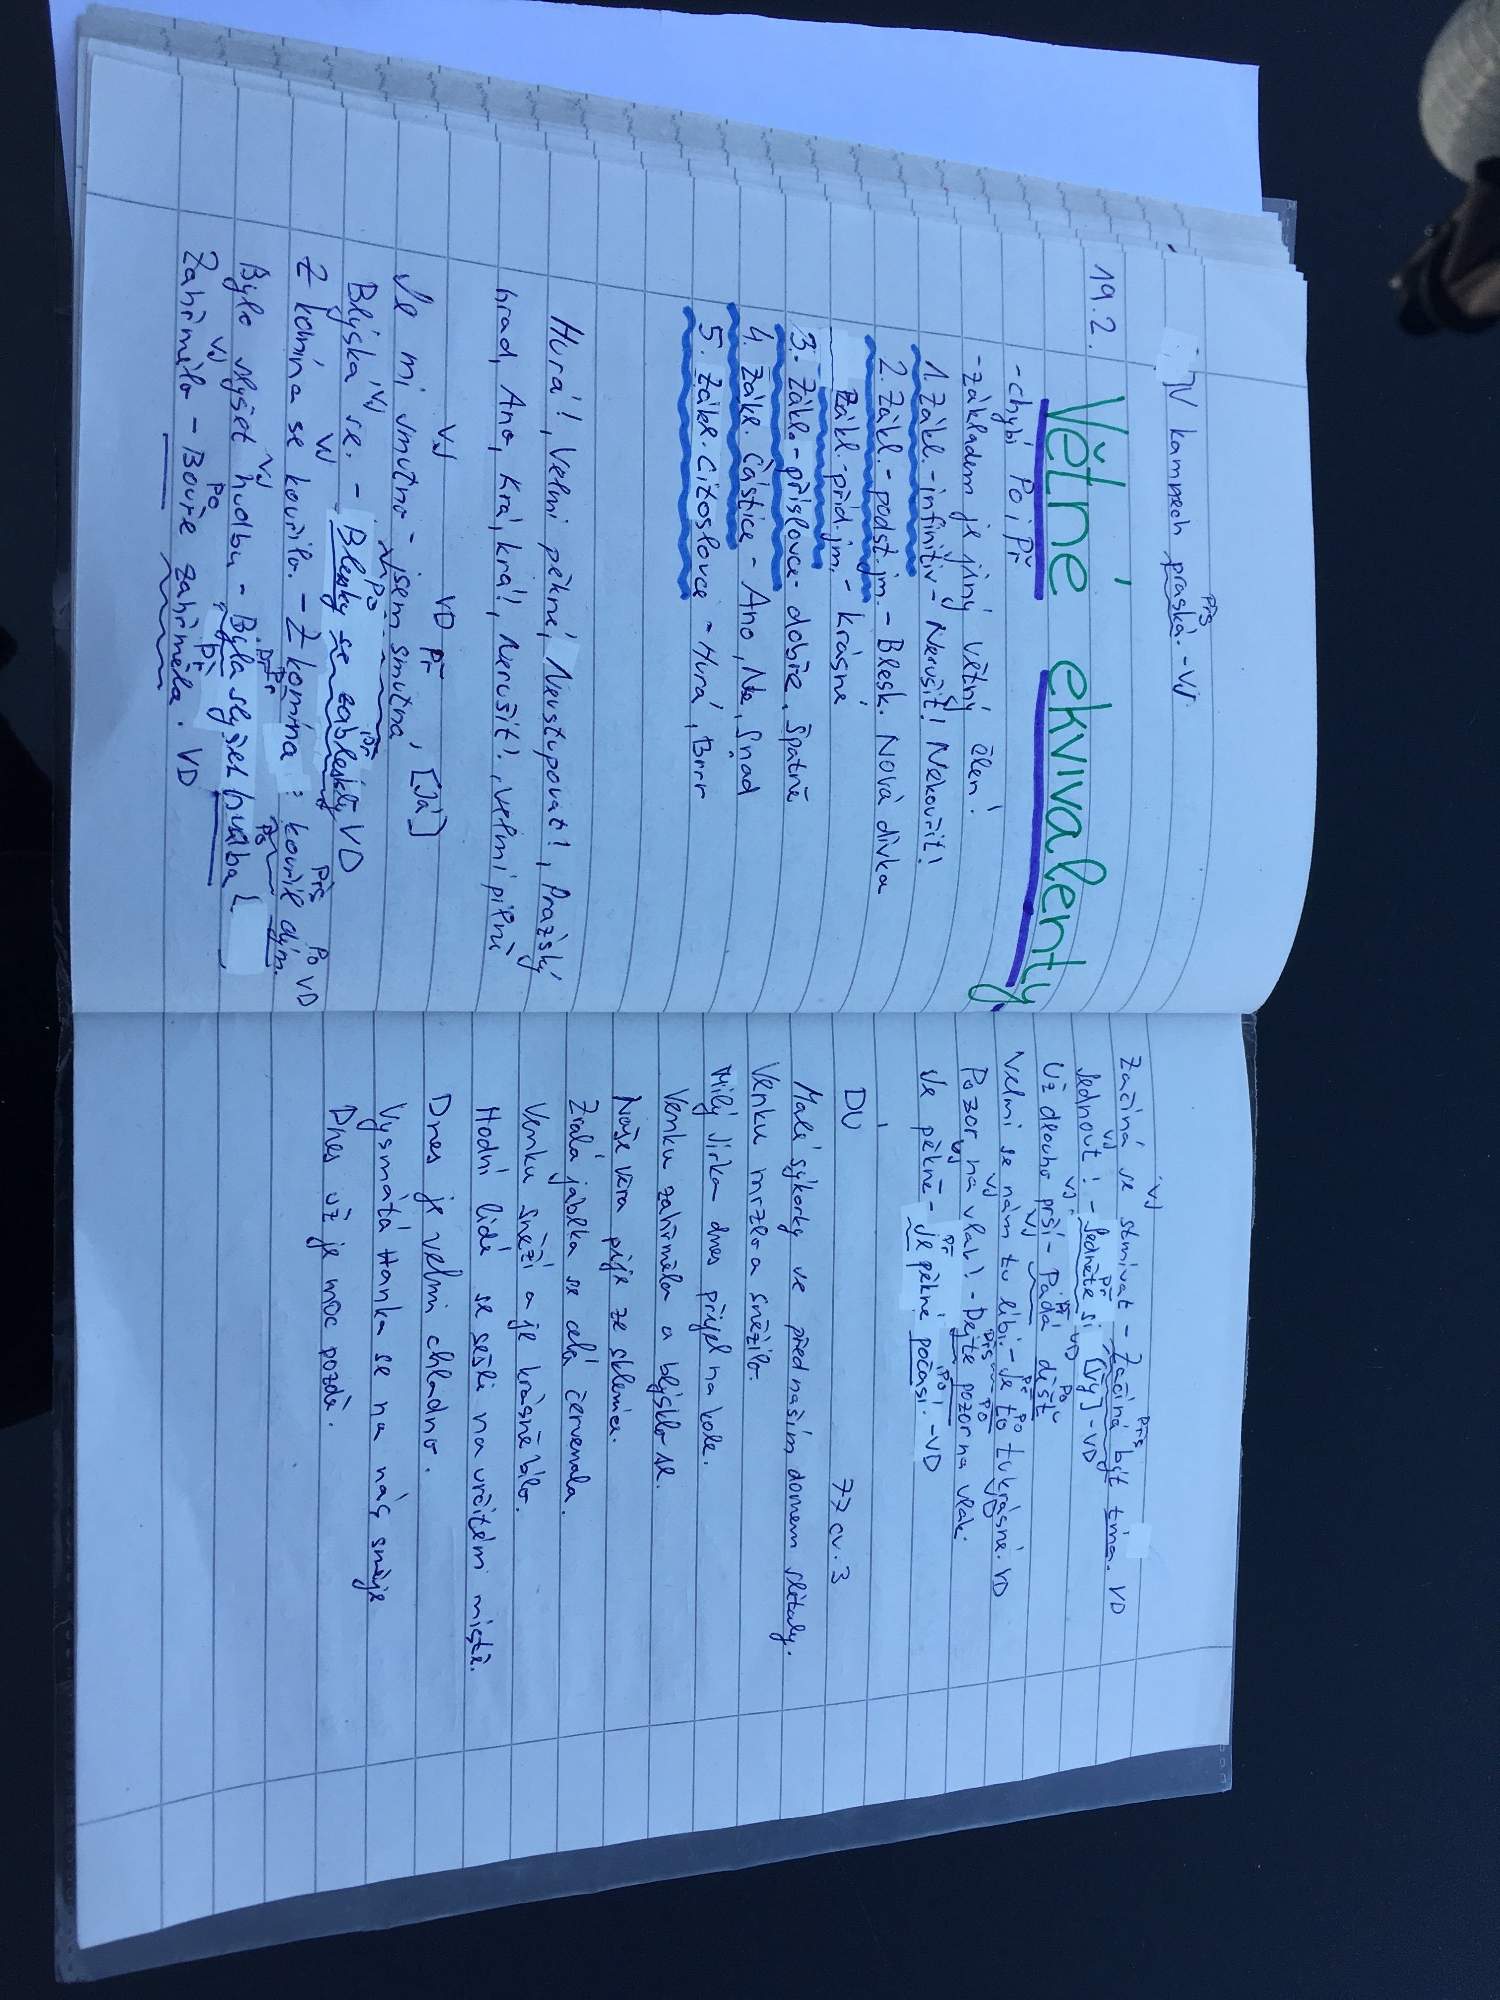 V kamnech praská. - VJ
Přs
19.2.
Větné ekvivalenty
- chybí Po i Př
- základem je jiný větný člen!
1. Zákl. - infinitiv - Nerušit! Nekouřit!
2. Zákl. - podst. jm. - Blesk. Nová dívka
Zákl. - příd. jm. - krásné
3. Zákl. - příslovce - dobře, špatně
4. Zákl. částice - Ano, Ne, Snad
5. Zákl. citoslovce - Hurá, Brrr
Hurá!, Velmi pěkné, Neustupovat!, Pražský
hrad, Ano, Krá, krá!, Nerušit!, velmi pilně
VJ VD Př
Je mi smutno - jsem smutná, [Já]
VJ Po Př
Blýská se. - Blesky se zableskly VD
VJ Př Přs Po VD
Z komína se kouřilo. - Z komína kouřil dým.
VJ Př Po
Bylo slyšet hudbu - Byla slyšet hudba
VJ Po Př
Zahřmělo - Bouře zahřměla. VD
VJ Přs
Začíná se stmívat - Začíná být tma. VD
VJ Př
Jednout! - Jedněte si [Vy] - VD
VJ Př VD Po
Už dlouho prší - Padá déšť
VJ Př Po
Velmi se nám tu líbí. - Je to tu krásné. VD
VJ Přs Po VD
Pozor na vlak! - Dejte pozor na vlak.
Př Po
Je pěkně - Je pěkné počasí. - VD
DÚ 77 cv. 3
Malé sýkorky se před naším domem slétaly.
Venku mrzlo a sněžilo.
Milý Jirka dnes přijel na kole.
Venku zahřmělo a blýsklo se.
Naše Věra pije ze sklenice.
Zralá jablka se celá červenala.
Venku sněží a je krásně bílo.
Hodní lidé se sešli na určitém místě.
Dnes je velmi chladno.
Vysmátá Hanka se na nás směje
Dnes už je moc pozdě.